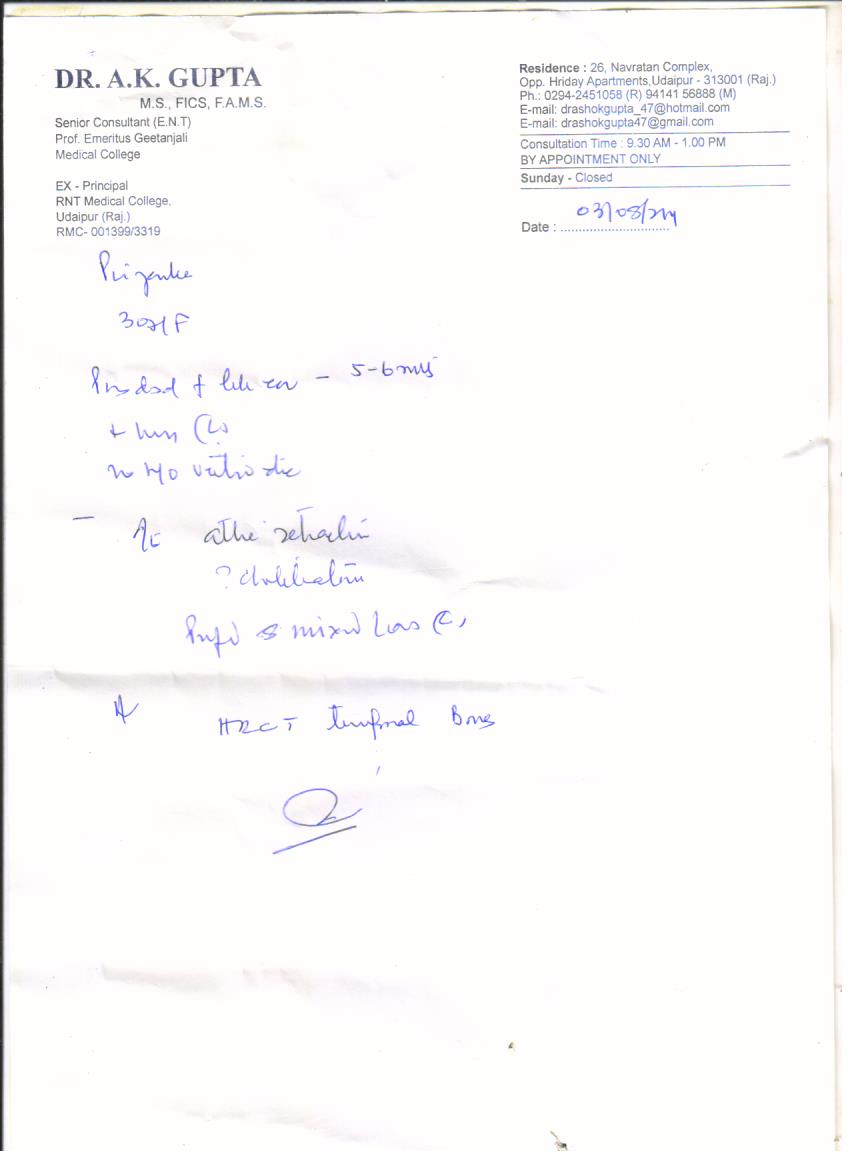 DR. A.K. GUPTA
M.S., FICS, F.A.M.S.
Senior Consultant (E.N.T)
Prof. Emeritus Geetanjali
Medical College
EX - Principal
RNT Medical College,
Udaipur (Raj.)
RMC- 001399/3319
Residence : 26, Navratan Complex,
Opp. Hriday Apartments,Udaipur - 313001 (Raj.)
Ph.: 0294-2451058 (R) 94141 56888 (M)
E-mail: drashokgupta_47@hotmail.com
E-mail: drashokgupta47@gmail.com
Consultation Time : 9.30 AM - 1.00 PM
BY APPOINTMENT ONLY
Sunday - Closed
Date : 03/08/24
Priyanka
30y/F
5-6 mths
no H/O
attic retraction
mixed loss
HRCT temporal Bones